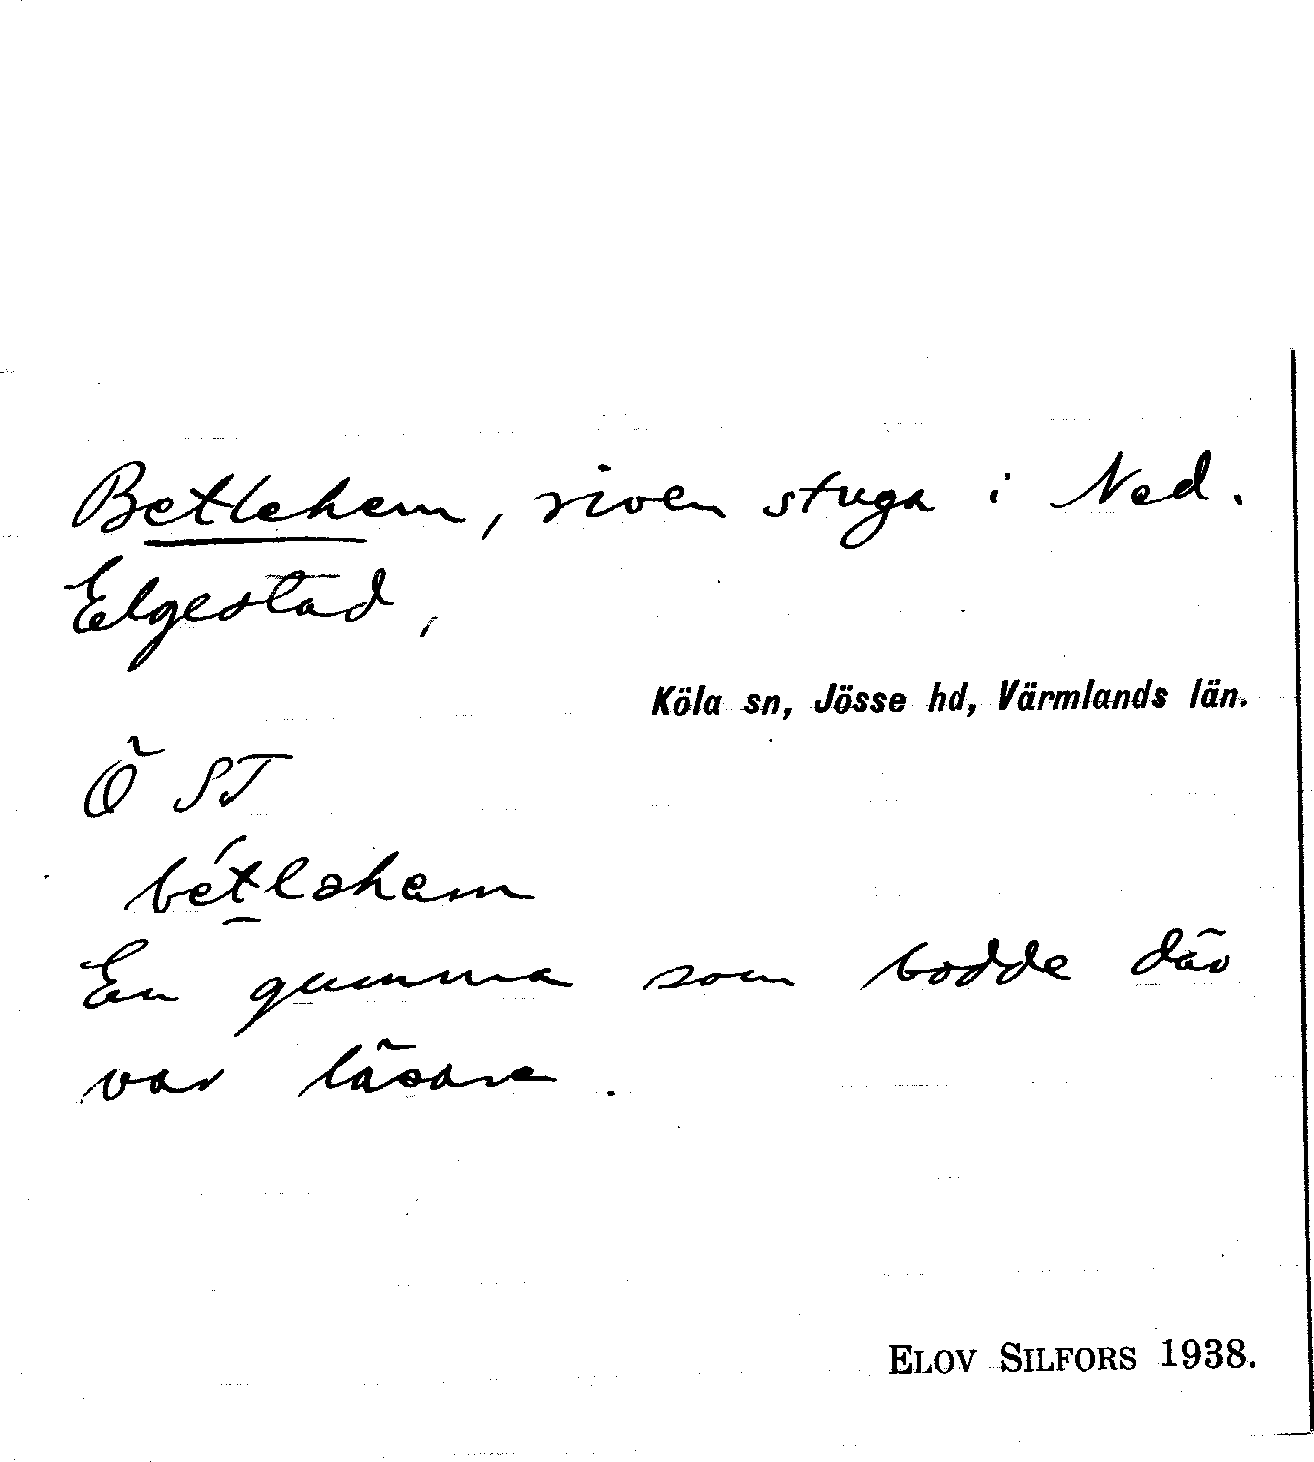 Betlehem, riven stuga i Ned.
Elgestad,
Köla sn, Jösse hd, Värmlands län.
Ö ST
bétləhem
En gumma som bodde där
var läsare.
ELOV SILFORS 1938.